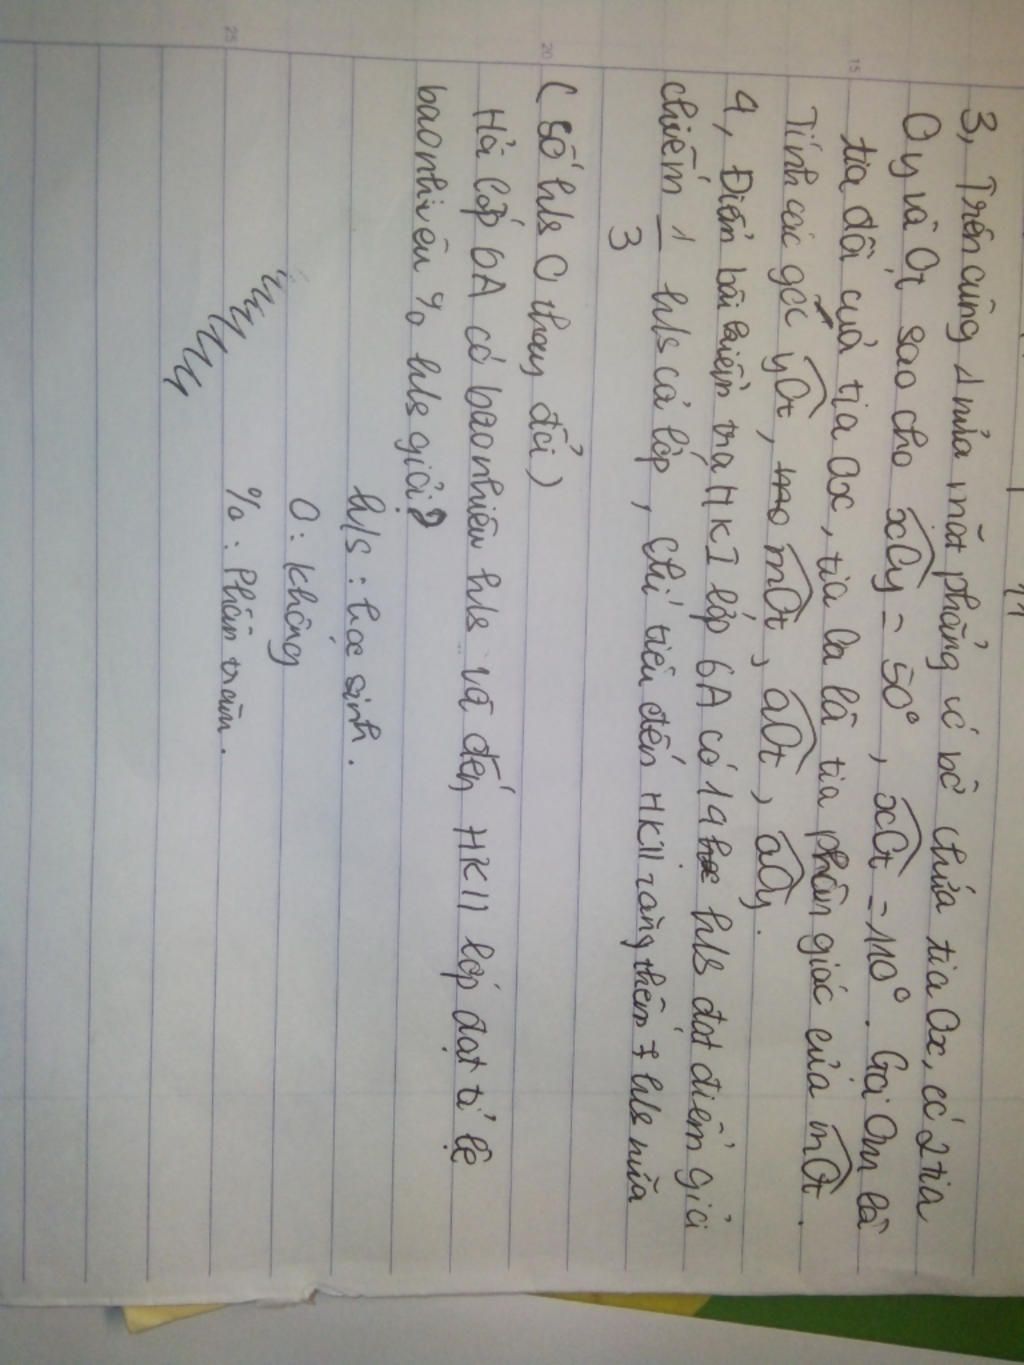 3, Trên cùng 1 nửa mặt phẳng có bờ chứa tia Ox, có 2 tia
Oy và Ot sao cho xOy = 50°, xOt = 110°. Gọi Om là
tia đối của tia Ox, tia la là tia phân giác của mOt.
Tính các góc yOt, mOt, aOt, aOy.
4, Điểm bài kiểm tra HKI lớp 6A có 14 h/s đạt điểm giỏi
chiếm 1/3 h/s cả lớp, chỉ tiêu đến HKII rằng thêm 7 h/s nữa
( số h/s O thay đổi )
Hỏi lớp 6A có bao nhiêu h/s và đến HKII lớp đạt tỉ lệ
bao nhiêu % h/s giỏi?
h/s : học sinh.
O : không
% : Phần trăm.
15
20
25